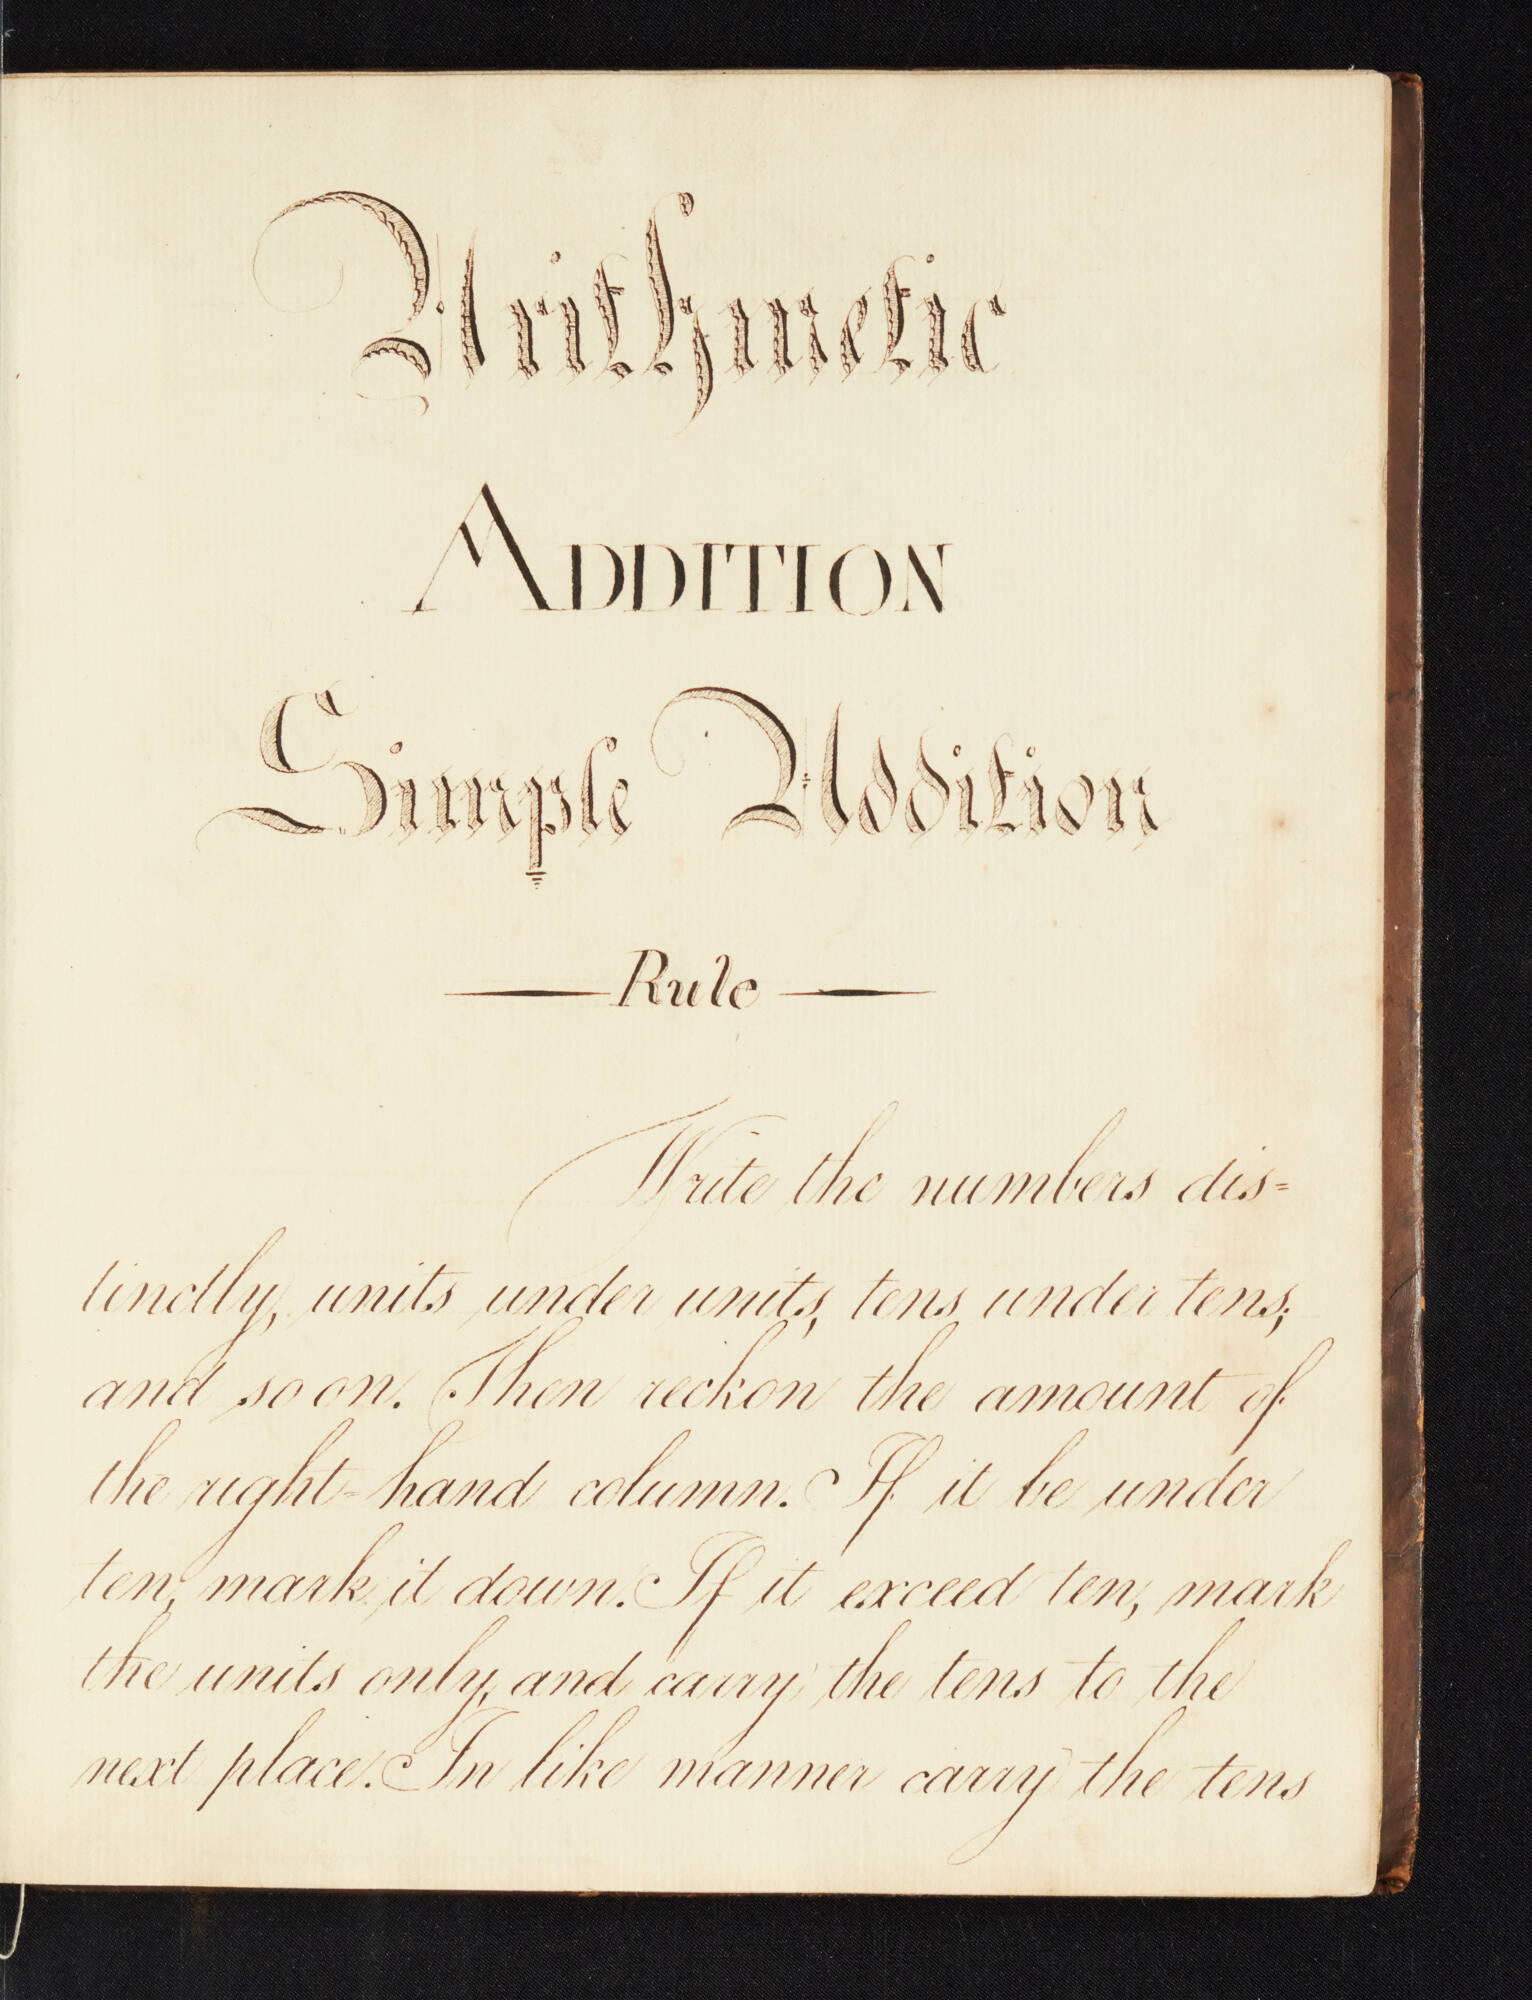 Arithmetic
ADDITION
Simple Addition
Rule
Write the numbers dis=
tinctly, units under units, tens under tens,
and so on. Then reckon the amount of
the right-hand column. If it be under
ten, mark it down. If it exceed ten, mark
the units only, and carry the tens to the
next place. In like manner carry the tens